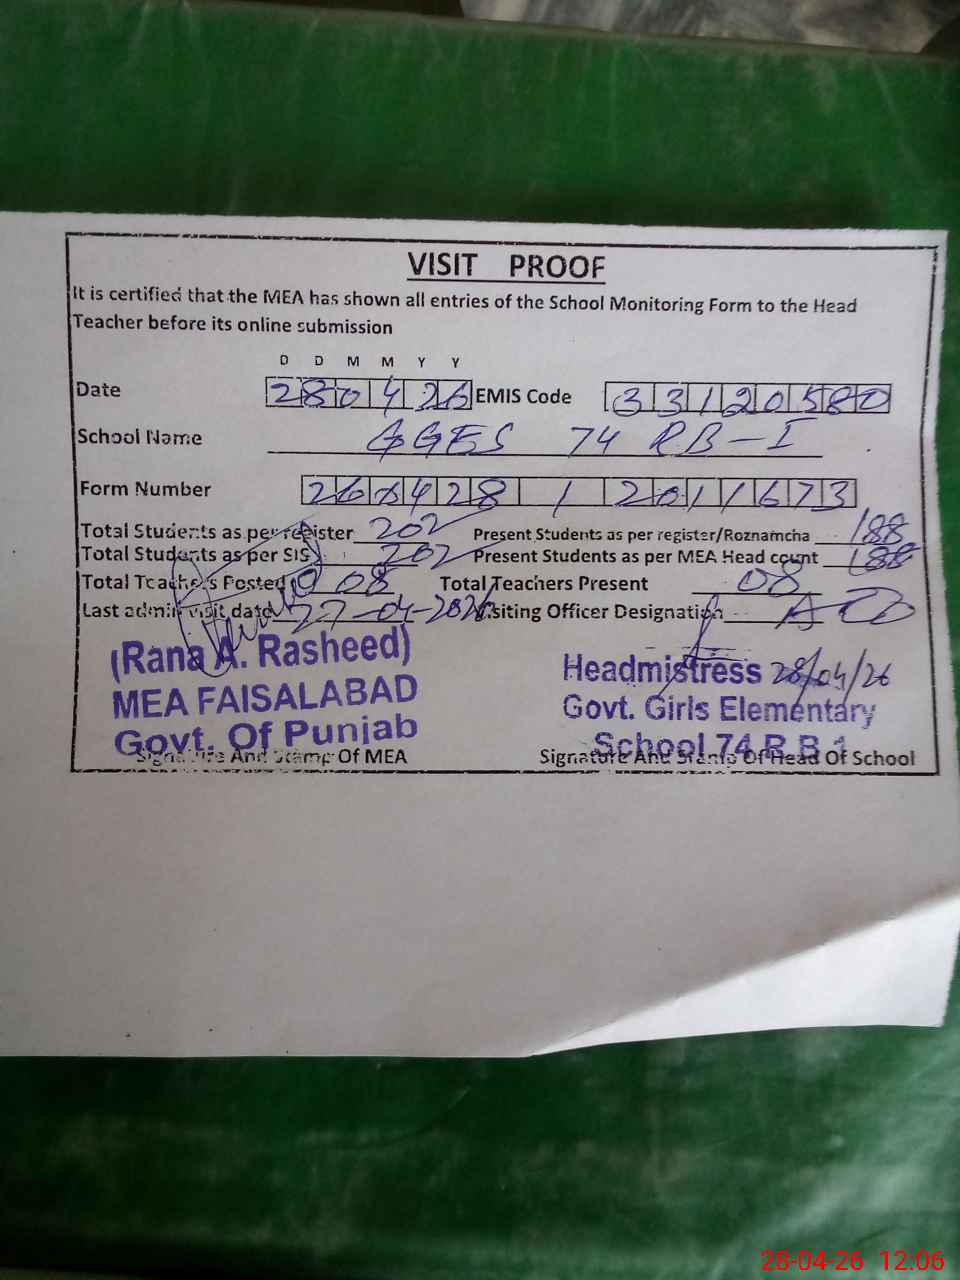 VISIT PROOF
It is certified that the MEA has shown all entries of the School Monitoring Form to the Head
Teacher before its online submission
D D M M Y Y
Date 280426 EMIS Code 33120580
School Name GGES 74 RB-I
Form Number 260428 1 2011673
Total Students as per register 202 Present Students as per register/Roznamcha 188
Total Students as per SIS 202 Present Students as per MEA Head count 188
Total Teachers Posted 08 Total Teachers Present 08
Last admin visit date 27-04-2026 Visiting Officer Designation
(Rana A. Rasheed) Headmistress 28/04/26
MEA FAISALABAD Govt. Girls Elementary
Govt. Of Punjab School 74 R.B 1
Signature And Stamp Of MEA Signature And Stamp Of Head Of School
28-04-26 12:06